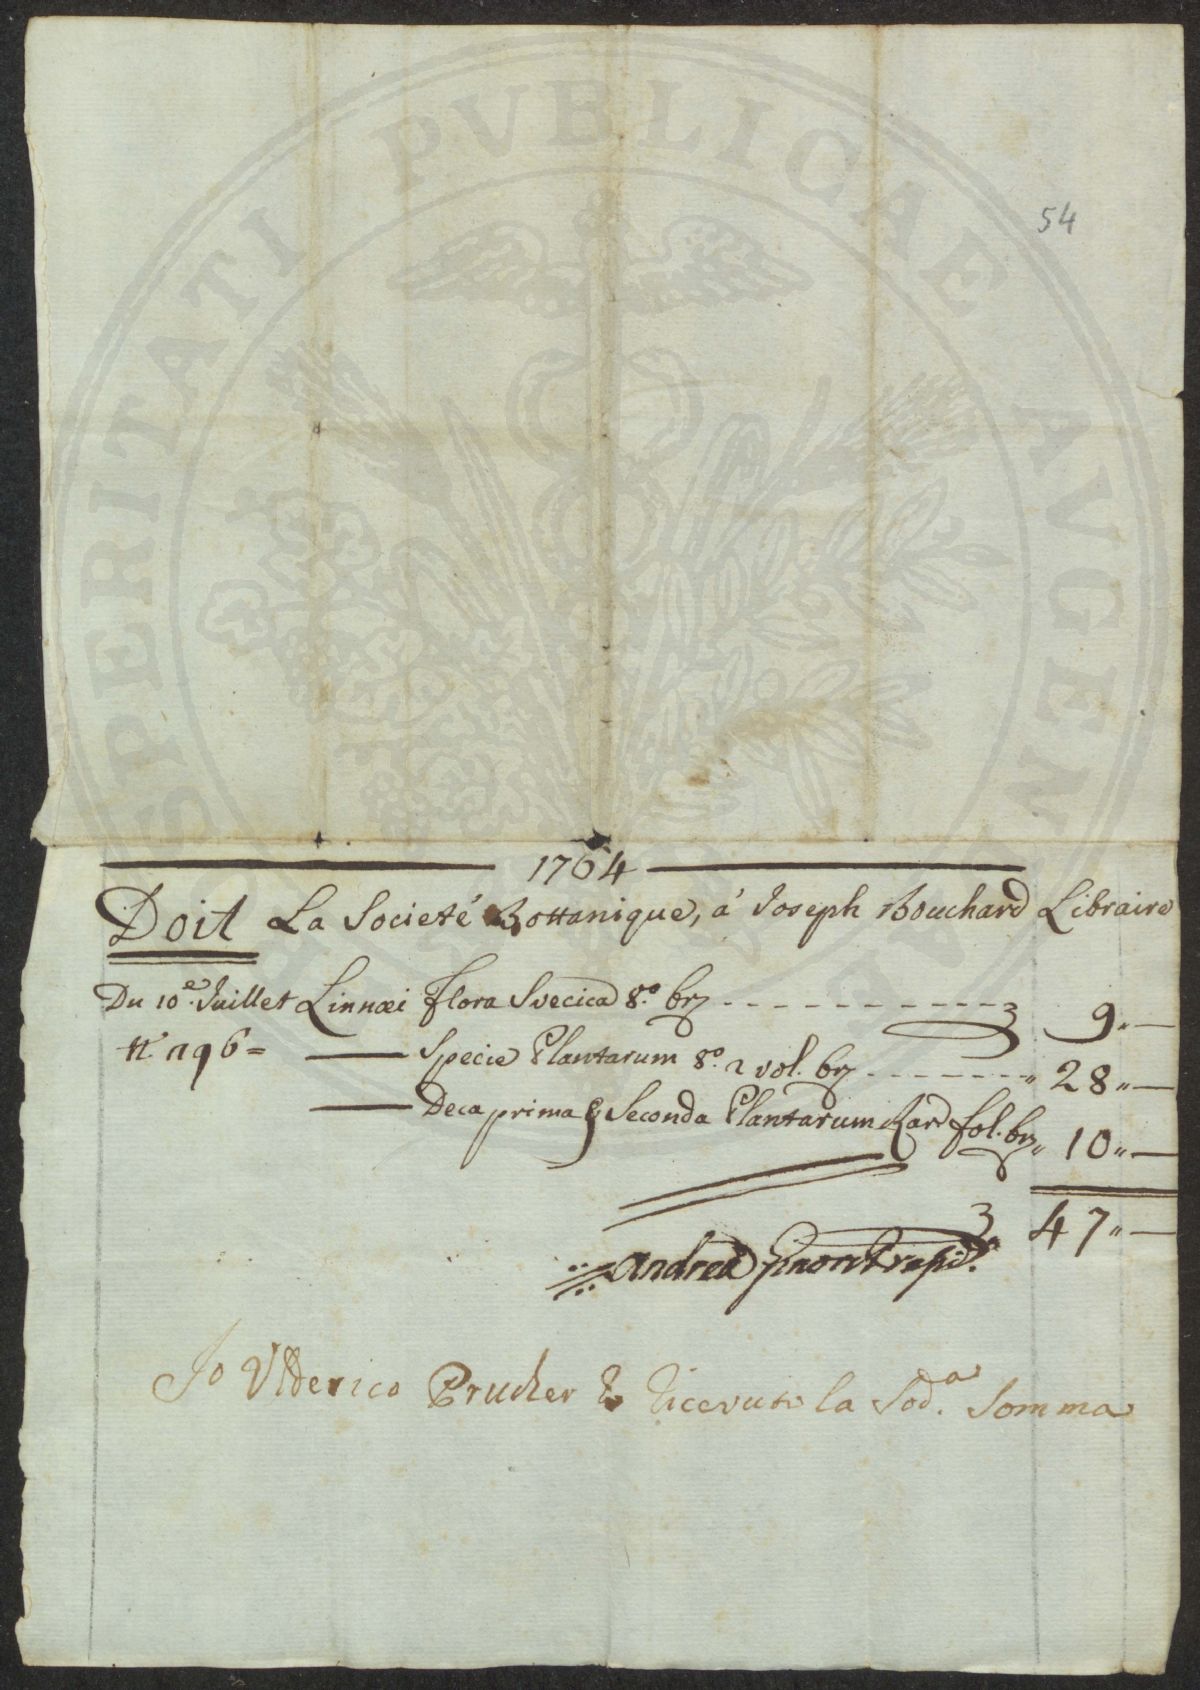 PROSPERITATI PVBLICAE AVGENDAE
54
1764
Doit La Societé Bottanique, á Joseph Bouchard Libraire
Du 10e. Juillet Linnæi Flora Svecica 8.o br, - - - - - - - - - - 9,, —
N. 196 = — Specie Plantarum 8.o 2 vol. br, - - - - - - - ,, 28,, —
— Deca prima & Seconda Plantarum Rar fol. br,, 10,, —
47,, —
Andrea Ginori Presid.
Io Vlderico Prucher ho riceuuto la Sod.a Somma